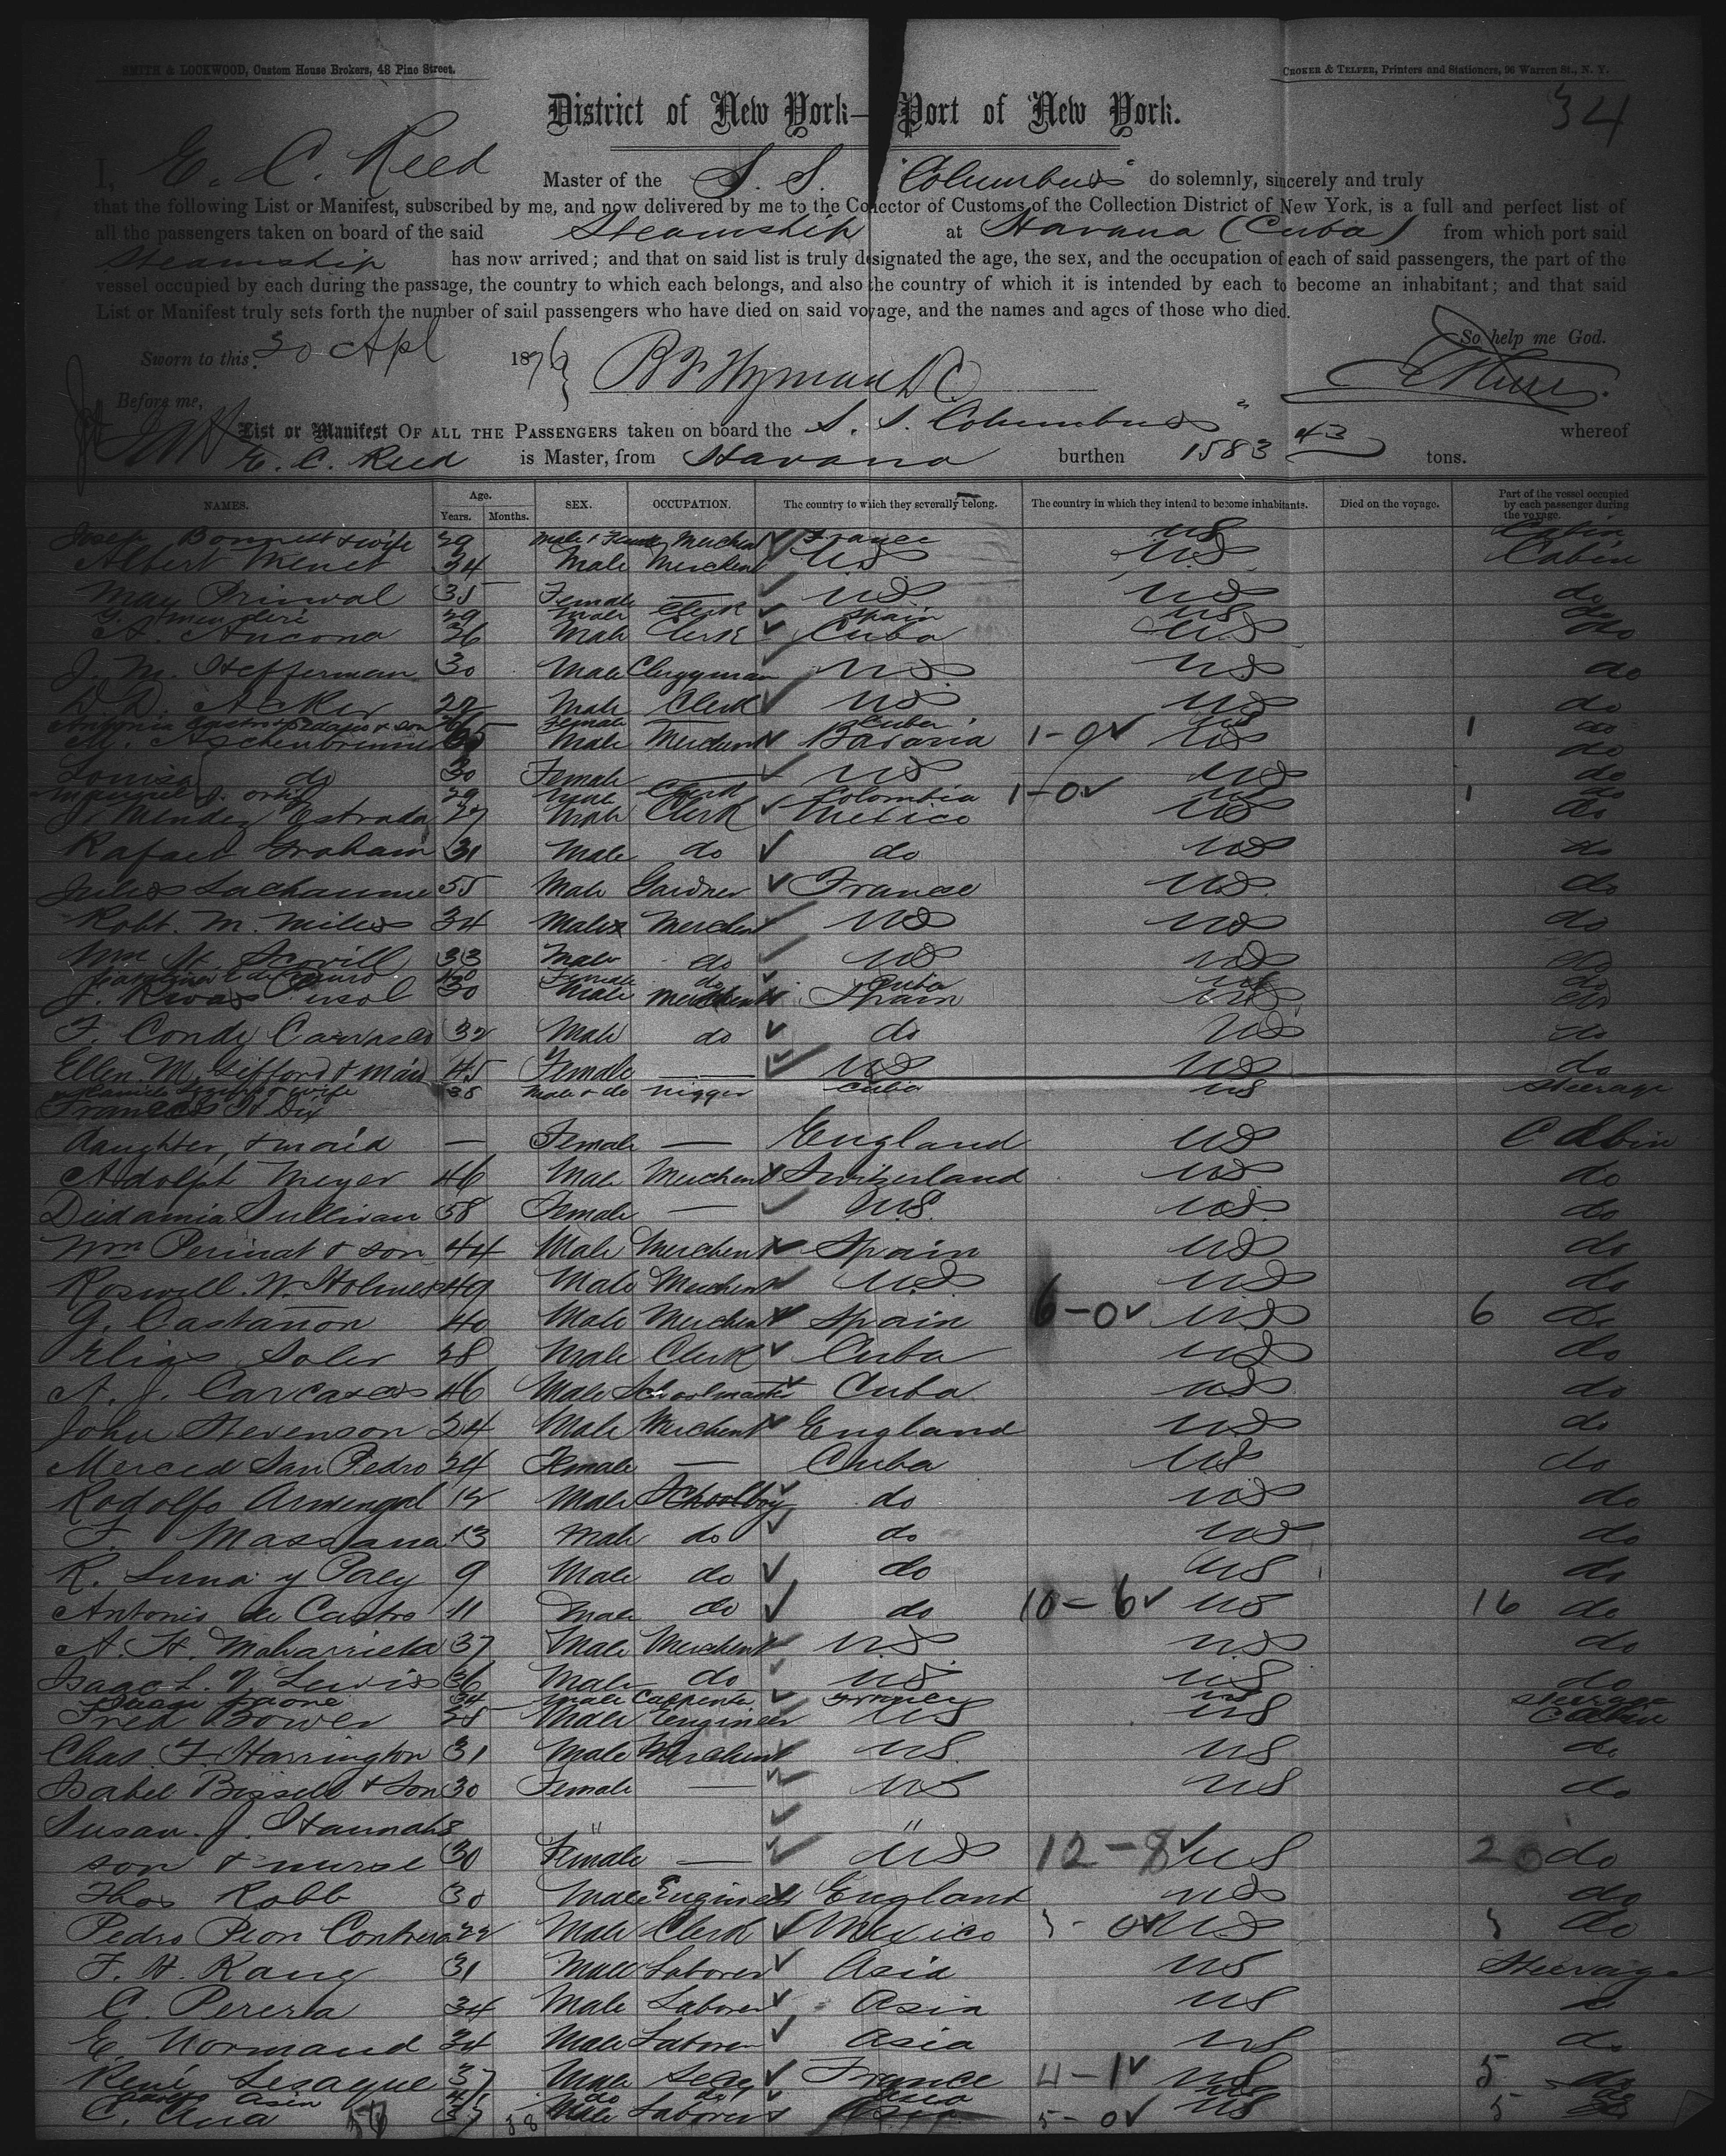 SMITH & LOCKWOOD, Custom House Brokers, 48 Pine Street.
CROKER & TELFER, Printers and Stationers, 96 Warren St., N. Y.
34
District of New York—Port of New York.
I, E. C. Reed Master of the S. S. "Columbus" do solemnly, sincerely and truly
that the following List or Manifest, subscribed by me, and now delivered by me to the Collector of Customs of the Collection District of New York, is a full and perfect list of
all the passengers taken on board of the said Steamship at Havana (Cuba) from which port said
Steamship has now arrived; and that on said list is truly designated the age, the sex, and the occupation of each of said passengers, the part of the
vessel occupied by each during the passage, the country to which each belongs, and also the country of which it is intended by each to become an inhabitant; and that said
List or Manifest truly sets forth the number of said passengers who have died on said voyage, and the names and ages of those who died.
So help me God.
Sworn to this 30 Apl 1876
Before me,
List or Manifest OF ALL THE PASSENGERS taken on board the S. S. Columbus" whereof
E. C. Reed is Master, from Havana burthen 1583 43 tons.
NAMES. Age. Years. Months. SEX. OCCUPATION. The country to which they severally belong. The country in which they intend to become inhabitants. Died on the voyage. Part of the vessel occupied by each passenger during the voyage.
Bonnett & wife 39 Merchant France US Cabin
Albert Menet 34 Male Merchant US US Cabin
May 35 Female — US US do
29 Male Clerk Spain US do
A. Ancona 26 Male Clerk Cuba US do
J. M. Hefferman 30 Male Clergyman US US do
Acker 22 Male Clerk US US do
Antonia & son Female — Cuba US do
M. Aschenbrenner Male Merchant Bavaria 1-0 US 1 do
Louisa do 30 Female — US US do
Manuel J. Ortiz 29 Male Clerk Colombia 1-0 US 1 do
J. Mendez Estrada 27 Male Clerk Mexico US do
Rafael Graham 31 Male do do US do
Jules Lachaume 55 Male Gardner France US do
Robt. M. Miles 34 Male Merchant US US do
Wm H. Scovill 33 Male do US US do
40 Female do Cuba US do
J. Rivas 30 Male Merchant Spain US do
F. Conde 32 Male do do US do
Ellen M. Gifford & maid 45 Female — US US do
& wife 38 Male & do nigger Cuba US Steerage
Frances H Dix
daughter, & maid — Female — England US Cabin
Adolph Meyer 46 Male Merchant Switzerland US do
Deidamia Sullivan 58 Female — U.S. US do
Wm Perinat & son 44 Male Merchant Spain US do
Roswell. W. Holmes 49 Male Merchant US US do
G. Castañon 40 Male Merchant Spain 6-0 US 6 do
Elias Soler 28 Male Clerk Cuba US do
A. J. Carcases 46 Male Schoolmaster Cuba US do
John Stevenson 24 Male Merchant England US do
Merced San Pedro 24 Female — Cuba US do
Rodolfo Armengol 12 Male Schoolboy do US do
F. Massana 13 Male do do US do
R. Luna y 9 Male do do US do
Antonio de Castro 11 Male do do 10-6 US 16 do
A. H. 37 Male Merchant U.S. U.S. do
Isaac L. V. Lewis 36 Male do US US do
34 Male Carpenter France US Steerage
Fred Bower 25 Male Engineer US US Cabin
Chas. F. Harrington 31 Male Merchant US US do
Isabel Bissell & Son 30 Female — US US do
Susan. J. Hannahs
son & nurse 30 Female — US 12-8 US 20 do
Thos Robb 30 Male Engineer England US do
Pedro Peon Contreras 22 Male Clerk Mexico US do
F. H. Kang 31 Male Laborer Asia US Steerage
C. Pereria 34 Male Laborer Asia US
E. Normand 34 Male Laborer Asia US do
René Lesague 37 Male France 4-1 US 5 do
Asin 41 do do Asia US do
C. Ana 37 Male Laborer 5-0 US 5